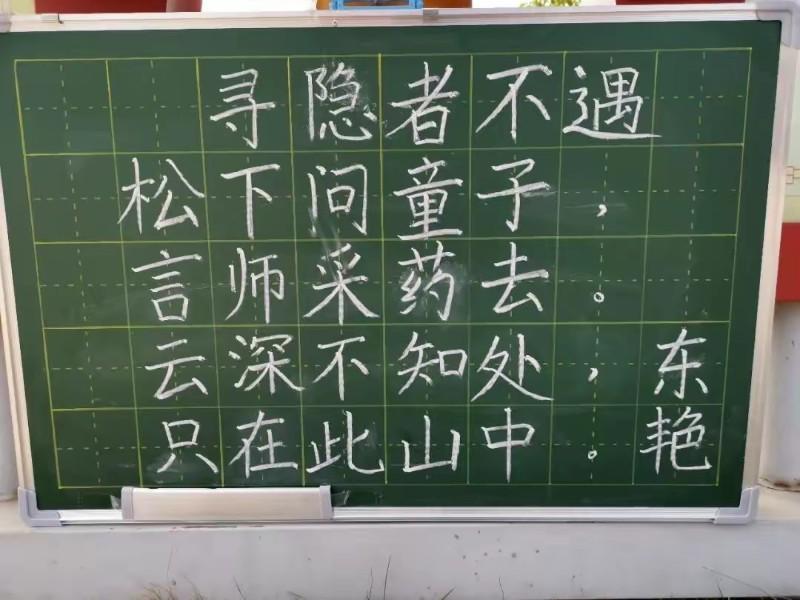 寻隐者不遇
松下问童子，
言师采药去。
云深不知处，东
只在此山中。艳